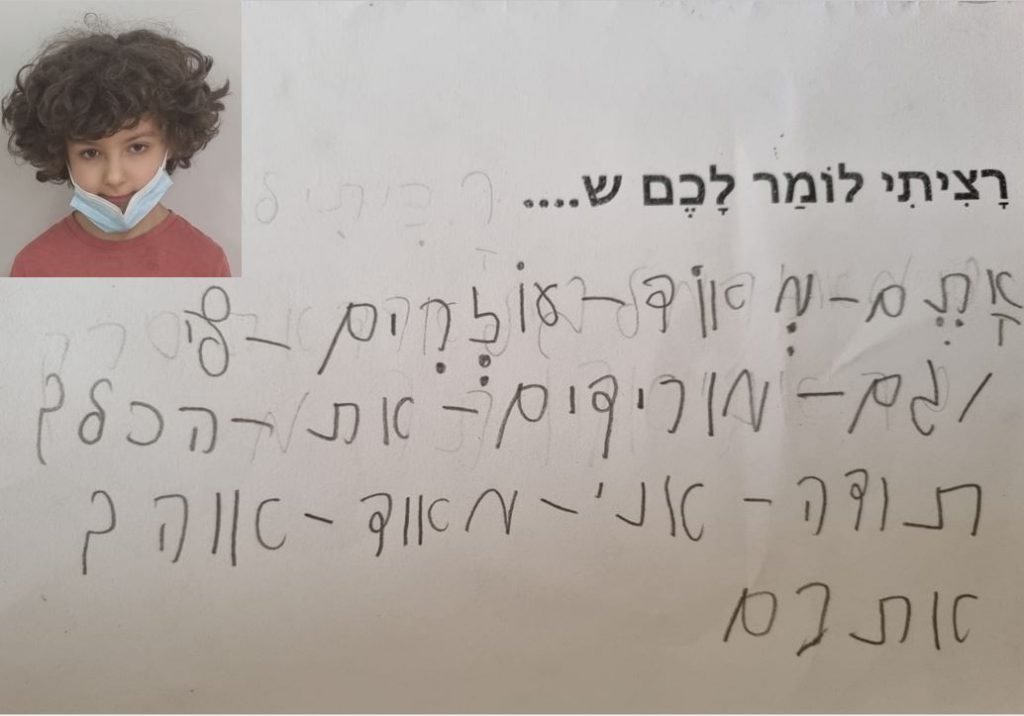 רָצִיתִי לוֹמַר לָכֶם ש....
אָתֵם - מְאוֹד - עוֹזְרִים - לי
וגם - מורידים - את - הכלב
תודה - אני - מאוד - אוהב
אתכם